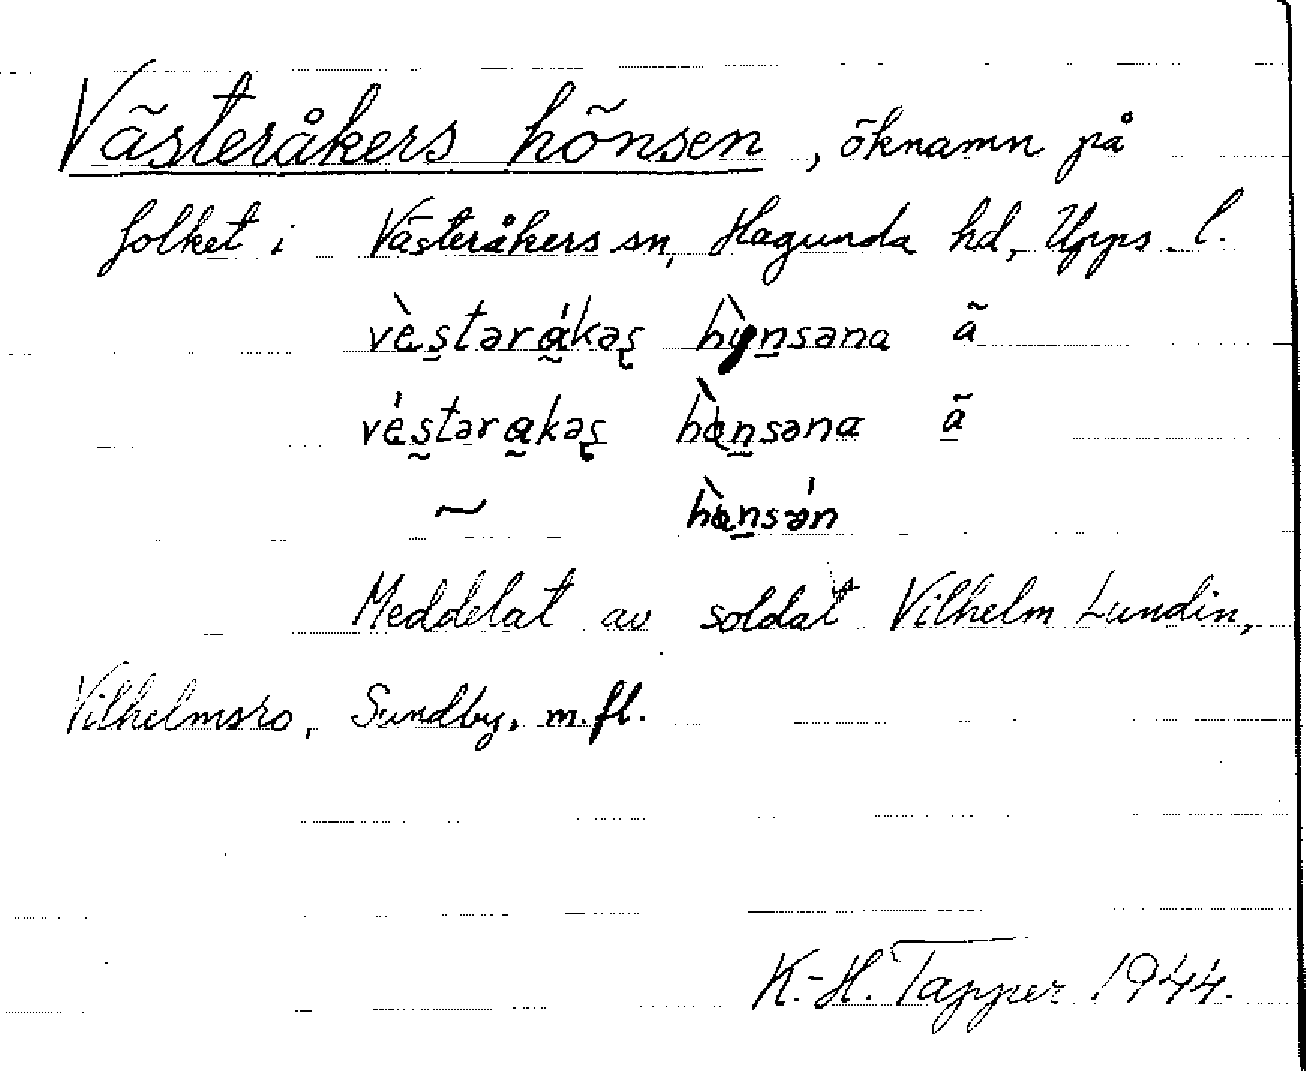 Västeråkers hönsen, öknamn på
folket i Västeråkers sn, Hagunda hd, Upps. l.
vèstəråkəʂ hỳnsəna ã
véstərakəʂ hɵ̀nsəna ã
~ hɵ̀nsə́n
Meddelat av soldat Vilhelm Lundin,
Vilhelmsro, Sundby, m.fl.
K.-H. Tapper 1944.